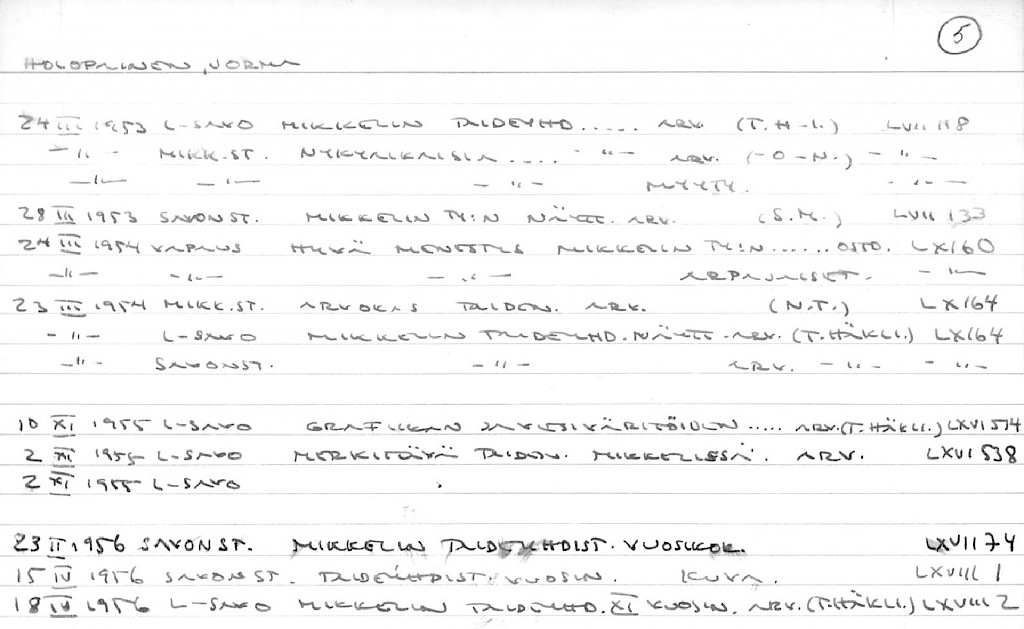 5
HOLOPAINEN, JORMA
24 III 1953 L-SAVO MIKKELIN TAIDEYHD..... ARV. (T. H-I.) LVII 118
-"- MIKK.ST. NYKYAIKAISIA .... -"- ARV. (-O-N.) -"-
-"- -"- -"- MYYTY. -"-
28 III 1953 SAVONST. MIKKELIN TY:N NÄYTT. ARV. (S.M.) LVII 133
24 III 1954 VAPAUS HYVÄ MENESTYS MIKKELIN TY:N ...... OSTO. LXI60
-"- -"- -"- ARPAJAISET. -"-
23 III 1954 MIKK.ST. ARVOKAS TAIDEN. ARV. (N.T.) LXI64
-"- L-SAVO MIKKELIN TAIDEYHD. NÄYTT. ARV. (T.HÄKLI.) LXI64
-"- SAVONST. -"- ARV. -"- -"-
10 XI 1955 L-SAVO GRAFIIKAN JA VESIVÄRITÖIDEN ..... ARV.(T.HÄKLI.) LXVI 574
2 XII 1955 L-SAVO MERKITTÄVÄ TAIDEN. MIKKELISSÄ. ARV. LXVI 538
2 XI 1955 L-SAVO
23 II 1956 SAVONST. MIKKELIN TAIDEYHDIST. VUOSIKOK. LXVII 74
15 IV 1956 SAVONST. TAIDEYHDIST. VUOSIN. KUVA. LXVIII 1
18 IV 1956 L-SAVO MIKKELIN TAIDEYHD. XI VUOSIN. ARV. (T.HÄKLI.) LXVIII 2